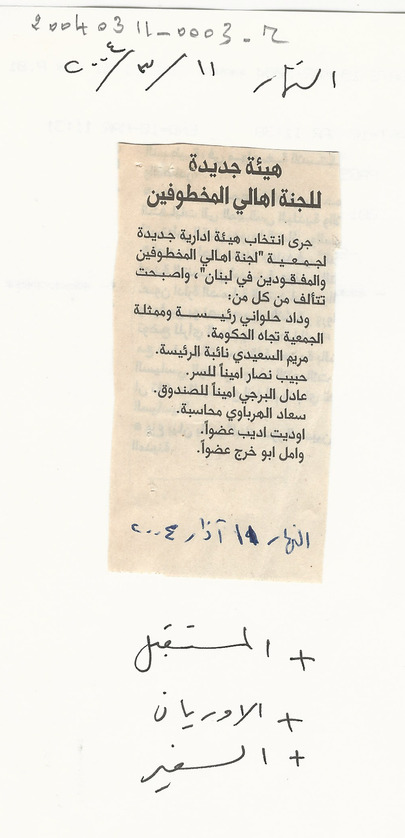 20040311-0003-2
النهار ١١/٣/٢٠٠٤
هيئة جديدة
للجنة اهالي المخطوفين
جرى انتخاب هيئة ادارية جديدة
لجمعية "لجنة اهالي المخطوفين
والمفقودين في لبنان"، واصبحت
تتألف من كل من:
وداد حلواني رئيسة وممثلة
الجمعية تجاه الحكومة.
مريم السعيدي نائبة الرئيسة.
حبيب نصار اميناً للسر.
عادل البرجي اميناً للصندوق.
سعاد الهرباوي محاسبة.
اوديت اديب عضواً.
وامل ابو خرج عضواً.
النهار ١١ آذار ٢٠٠٤
+ المستقبل
+ الاوريان
+ السفير